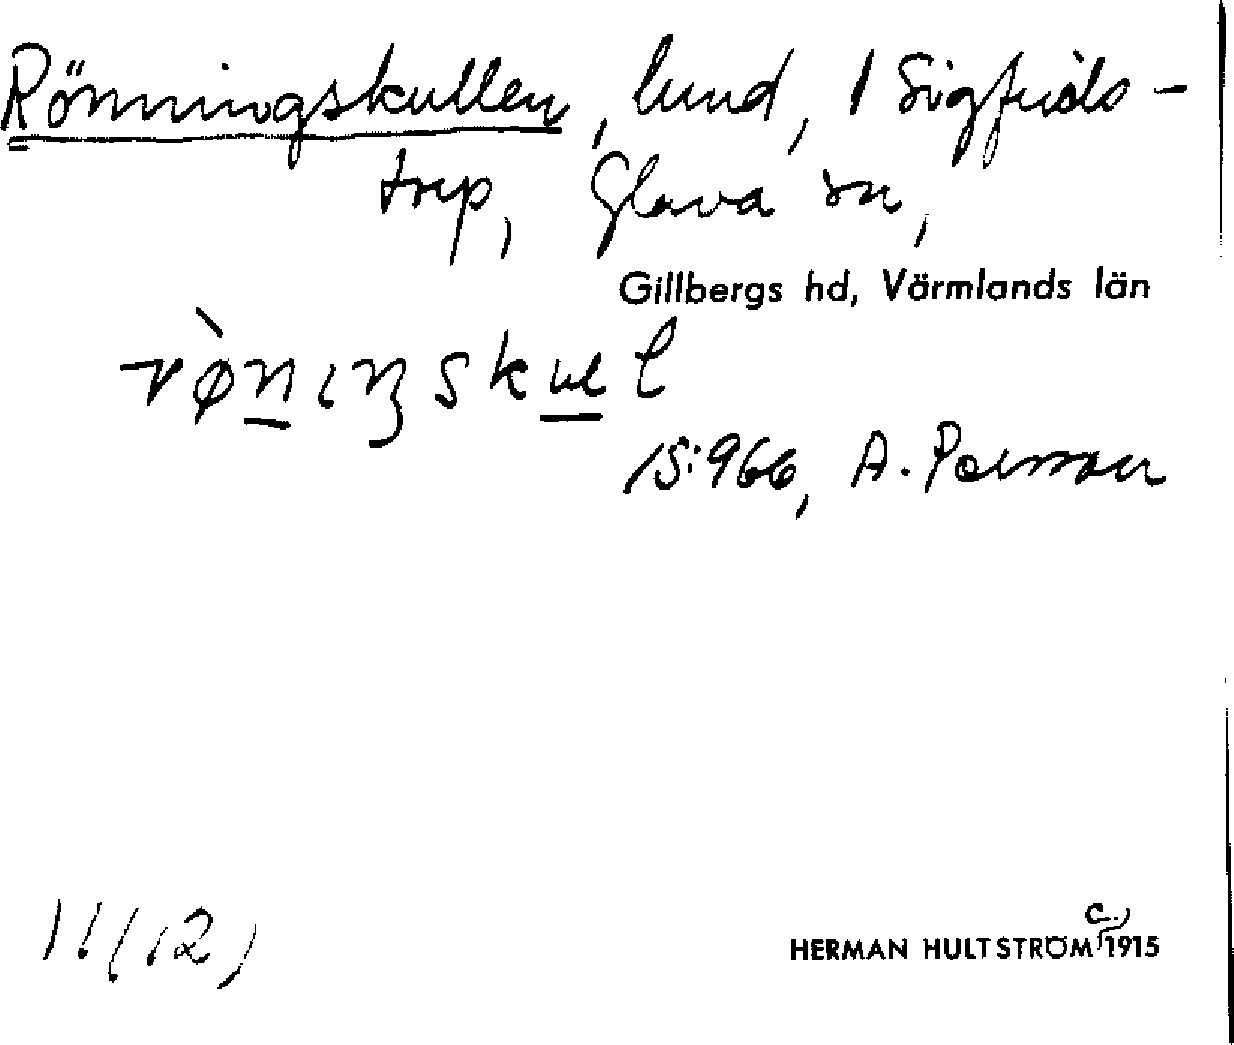 Rönningskullen, lund, 1 Sigfrids-
torp, Glava sn,
Gillbergs hd, Värmlands län
15:966, A. Persson
11(12)
HERMAN HULTSTRÖM c. 1915